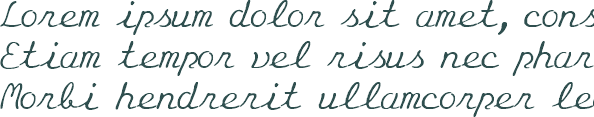 Lorem ipsum dolor sit amet, cons
Etiam tempor vel risus nec phar
Morbi hendrerit ullamcorper le